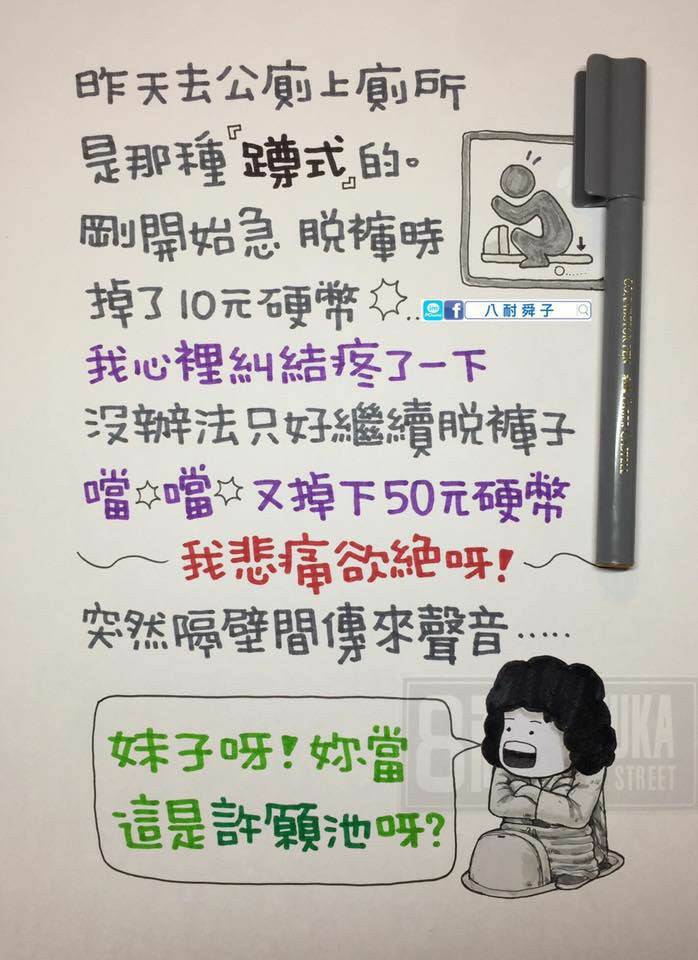 昨天去公廁上廁所
是那種『蹲式』的。
剛開始急 脫褲時
掉了10元硬幣..
八耐舜子
我心裡糾結疼了一下
沒辦法只好繼續脫褲子
噹噹又掉下50元硬幣
我悲痛欲絕呀!
突然隔壁間傳來聲音.....
妹子呀!妳當
這是許願池呀?
UKA
STREET